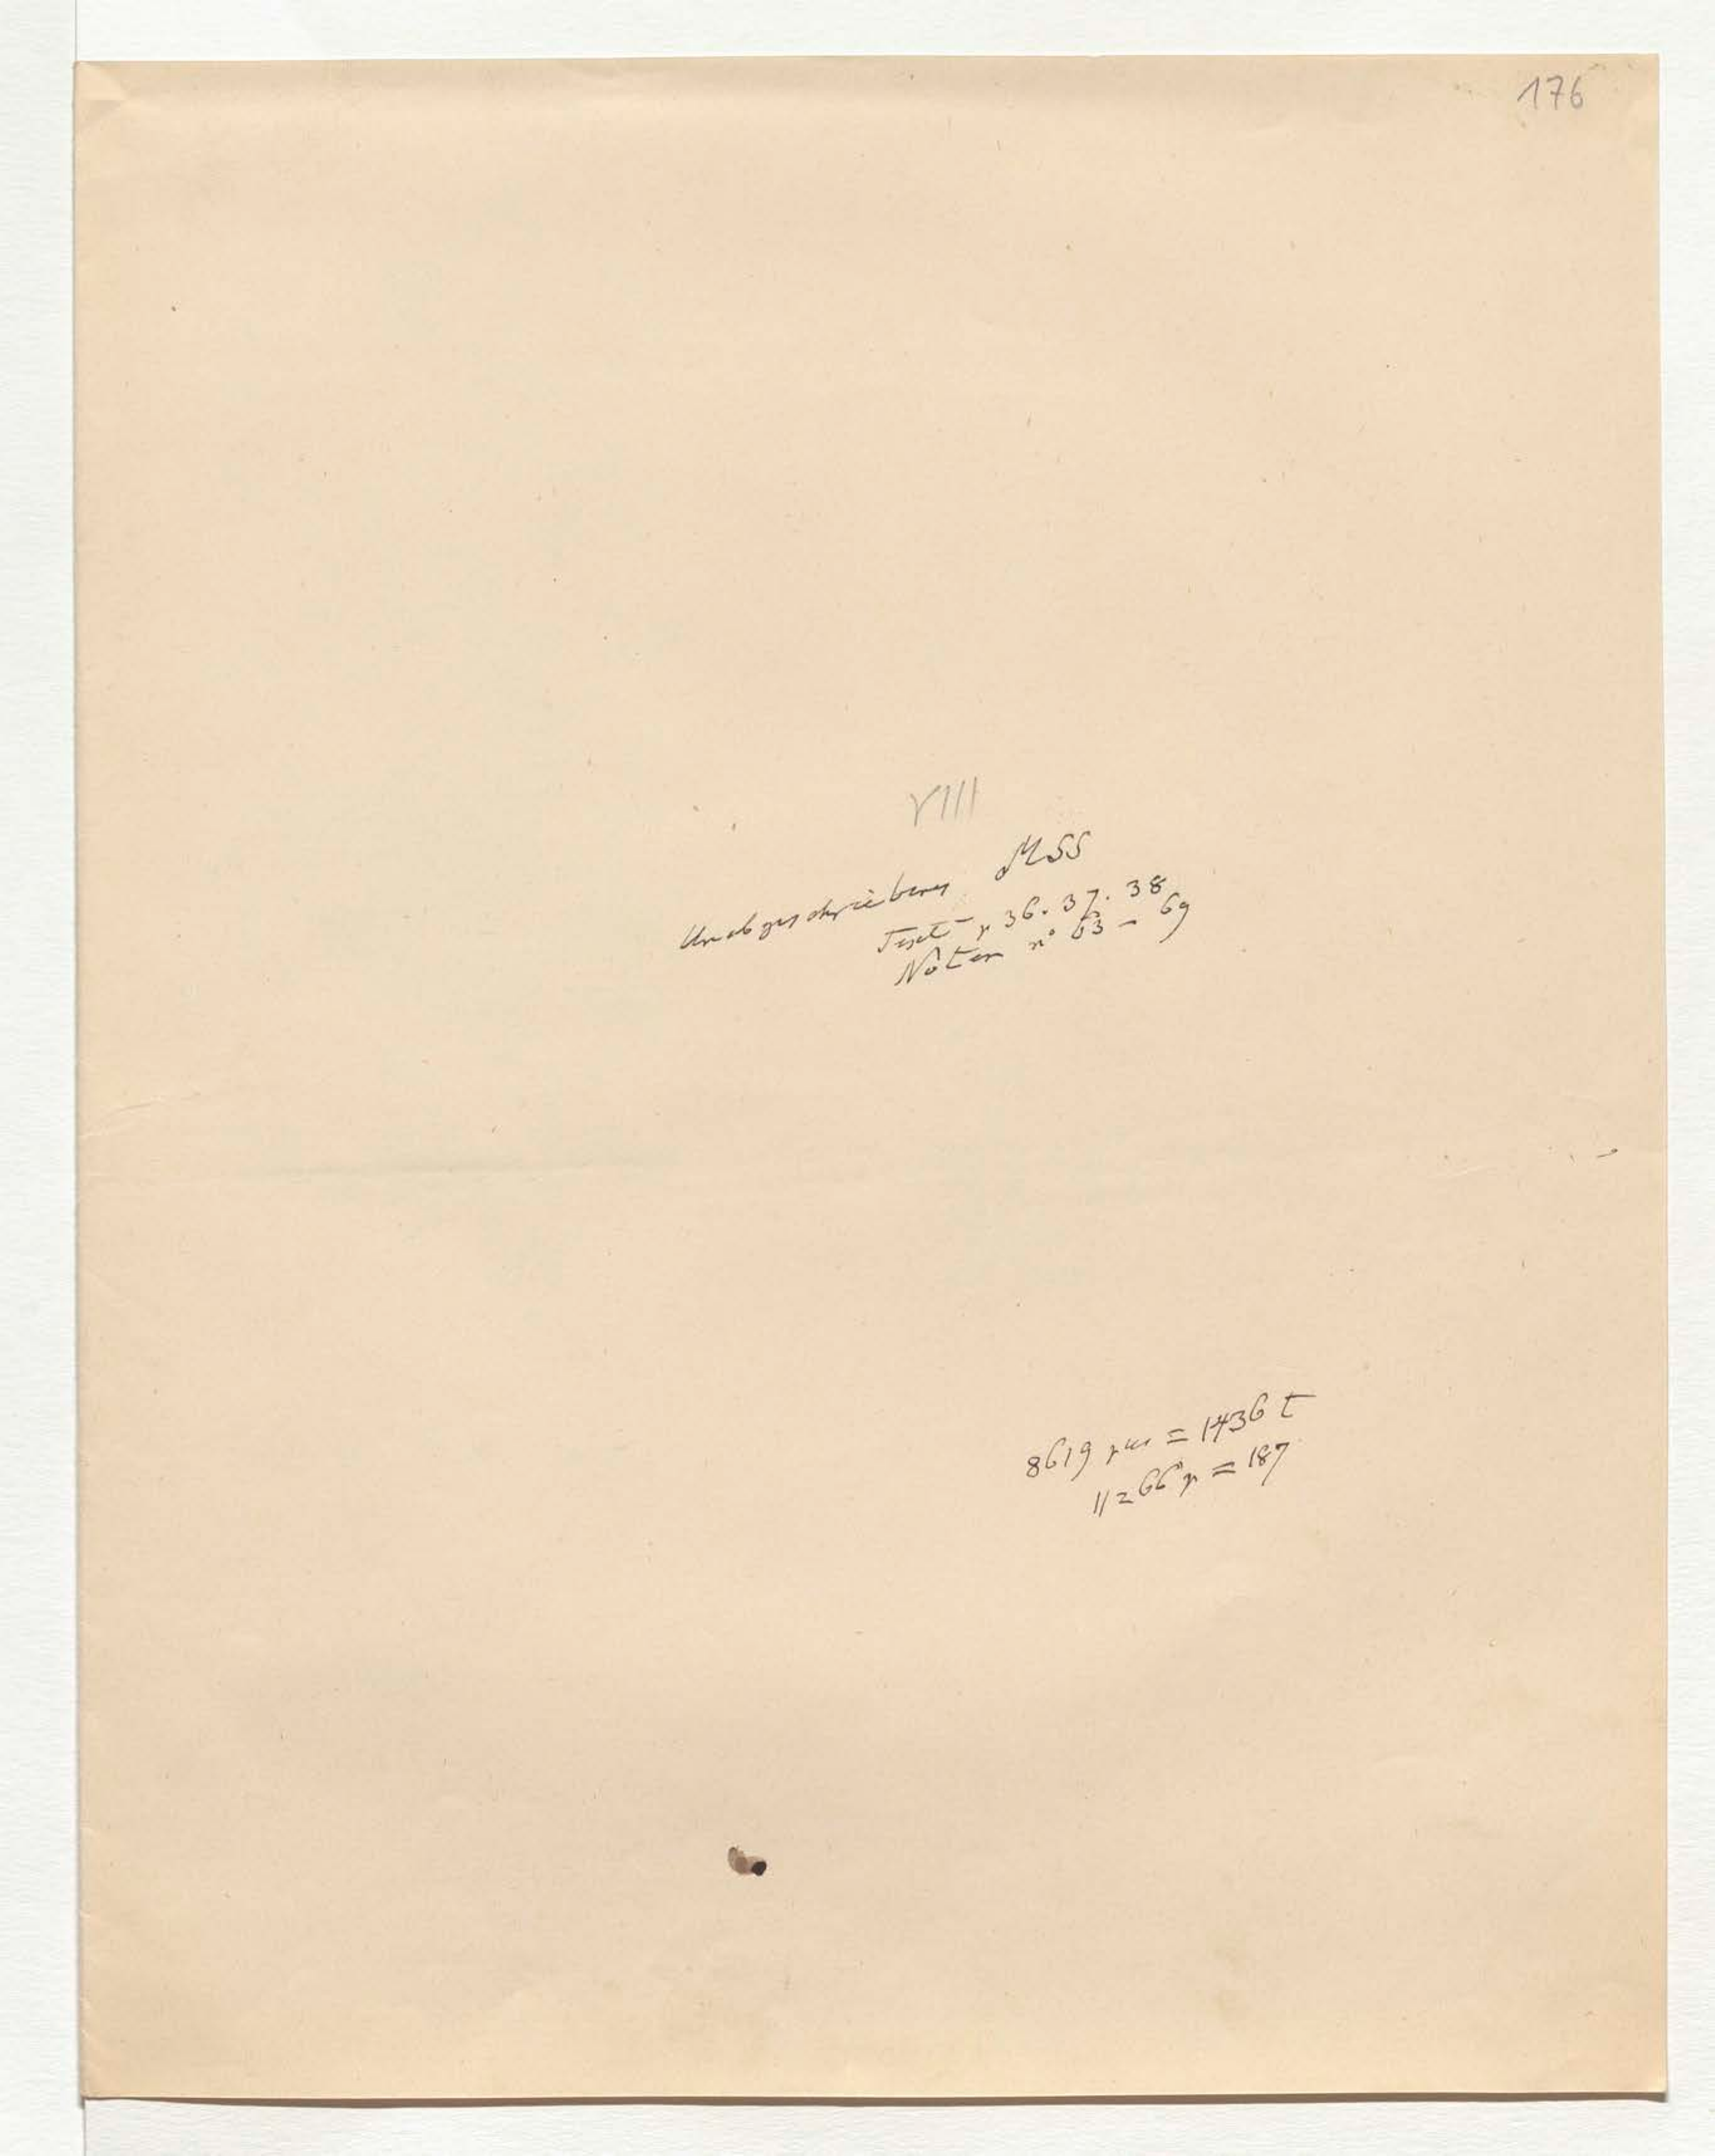 176
VIII
Unabgeschriebenes MSS
Text p 36. 37. 38
Noten nº 63 – 69
8619 = 1436 t
11266 p = 187